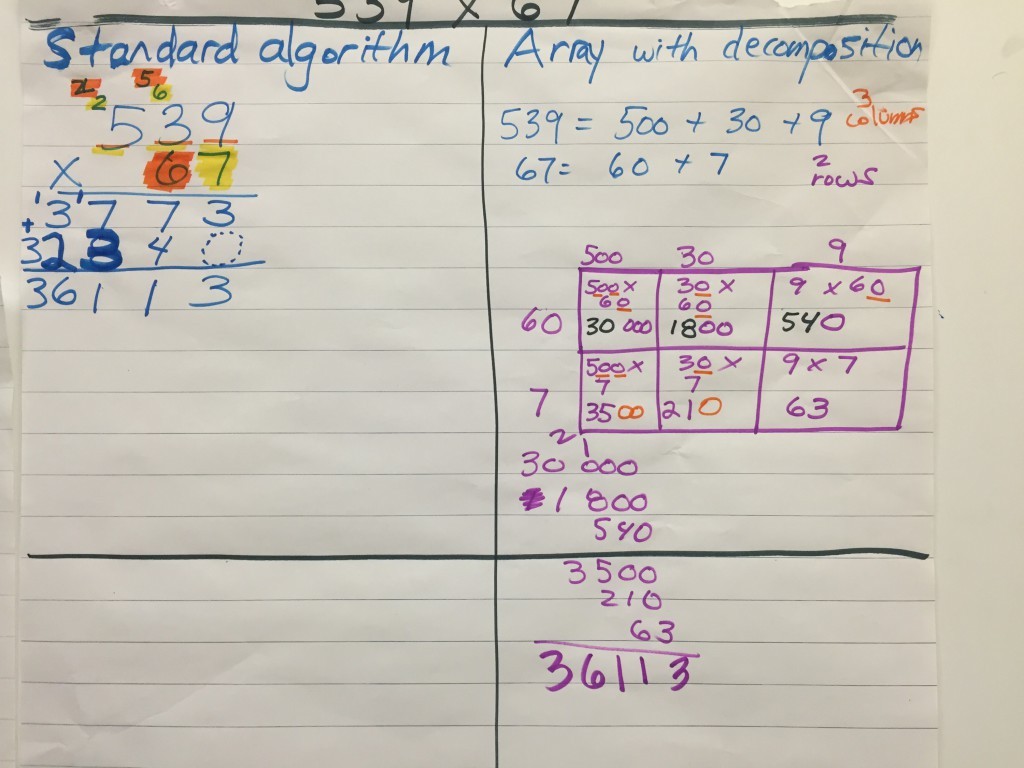 539 x 67
Standard algorithm
2 5
2 6
539
x 67
1 1
+3773
32340
36113
Array with decomposition
539 = 500 + 30 + 9 3 colums
67= 60 + 7 2 rows
500 30 9
500 x 60 30 x 60 9 x 60
60 30 000 1800 540
500 x 7 30 x 7 9 x 7
7 3500 210 63
2 1
30 000
1 800
540
3500
210
63
36113